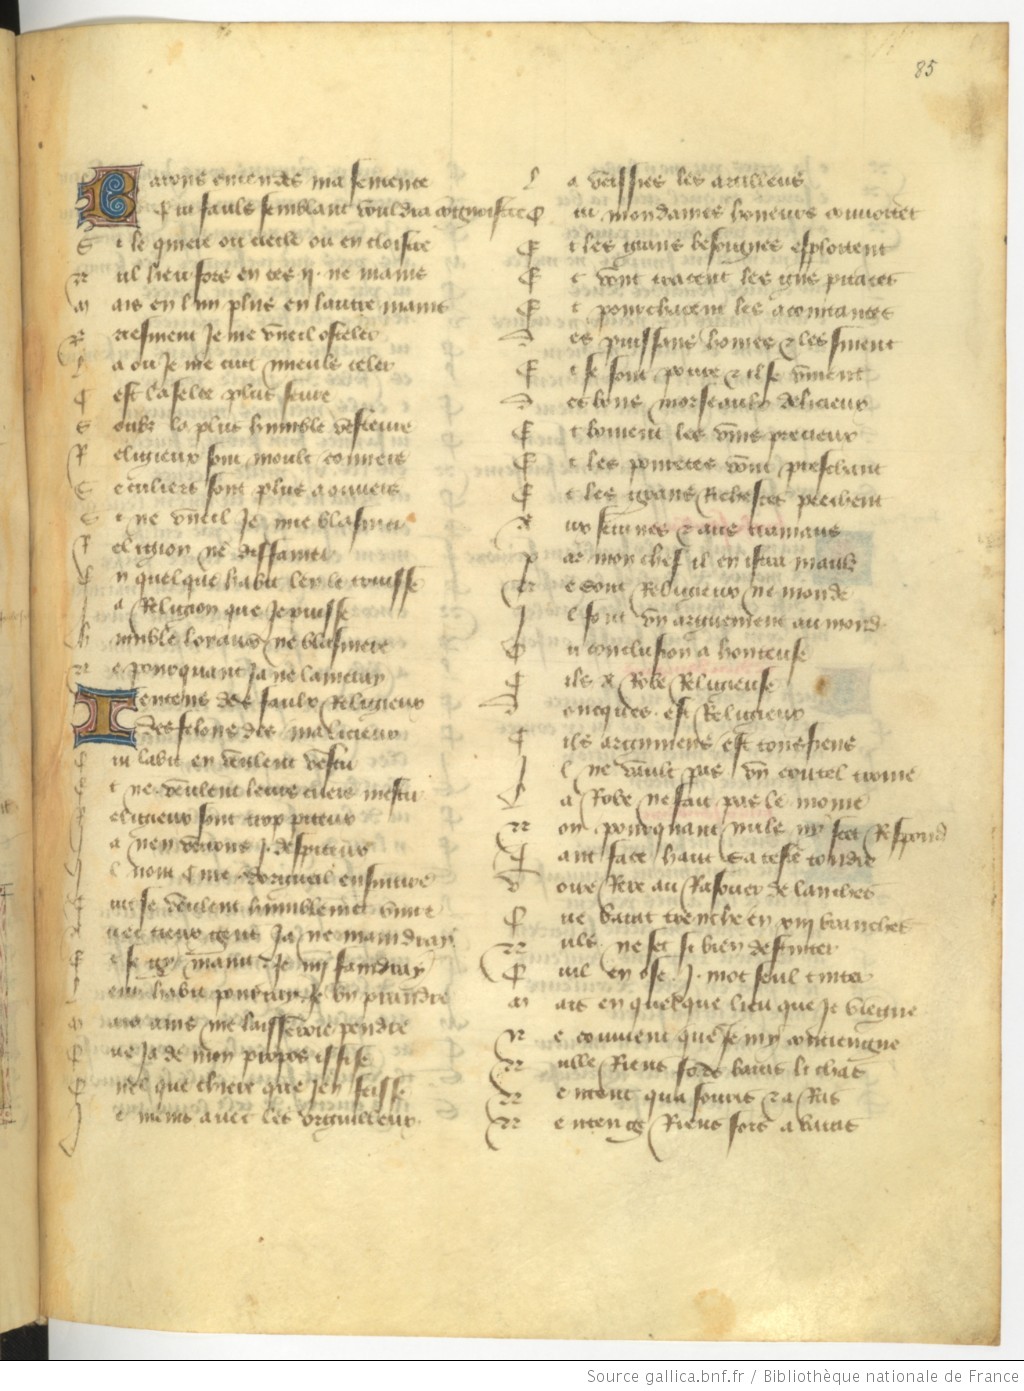 85
Barons entendes ma sentence
Qui fauls semblant vouldra congnoistre
S i le quiere ou ciecle ou en cloistre
N ul lieu fors en ces ij. ne mains
M ais en lun plus en lautre mains
B riefment Je me vueil osteler
L a ou Je me cuit mieulx celer
C est la celee plus seure
S oubz la plus humble vesteure
R eligieux sont moult couvers
S eculiers sont plus a ouvers
S i ne vueil Je mie blasmer
R eligion ne diffamer
E n quelque habit que le truisse
J a Religion que Je puisse
H umble loyaus ne blasmeray
N e pourquant Ja ne lameray
J entens des faulx Religieux
Des felons des malicieux
Q ui labit en veulent vestir
E t ne veulent leurs cuers mestir
R eligieux sont trop piteux
J a nen verrons .j. despiteux
I l nont cure dorgueil ensuivre
Tuit se veulent humblement vivre
Avec tieux gens Ja ne maindray
E t se Jy maing Je my faindray
L eur habit pourray Je bien prandre
M ais ains me laisseroie pendre
Q ue Ja de mon propos ississe
Q uel que chiere que Jen feisse
J e mains avec les orguilleux
L a veissies les artilleux
Q ui mondaines honeurs couvoitent
E t les grans besoignes esploitent
E t vont tracent les grans pitances
E t pourchacent les acointances
D es puissans homes & les suient
E t se font povre & il se vivent
D es bons morseaulx delicieux
E t boivent les vins precieux
E t les povretes vont preschant
E t les grans Richesces peschent
A ux seinnes & aus tramaus
P ar mon chief il en istra maulx
N e sont Religieux ne monde
I l font un arguement au monde
O u conclusion a honteuse
C ilz a Robe Religieuse
D oncques est Religieux
C ilz argumens est touz fiens
I l ne vault pas un coutel troine
L a Robe ne fait pas le moine
N on pourquant nulz ny scet Respondre
T ant face hault sa teste tondre
V oire Rere au Rasouer de lanches
Q ue barat trenche en xiij branches
N ulz ne set si bien defniter
Q uil en ose .j. mot seul tinter
M ais en quelque lieu que Je viengne
N e couvient que Je my contiengne
N ulle Riens fors barat li chas
N e tent qua souris & a Ras
N entens ge Riens fors a baras
Source gallica.bnf.fr / Bibliothèque nationale de France